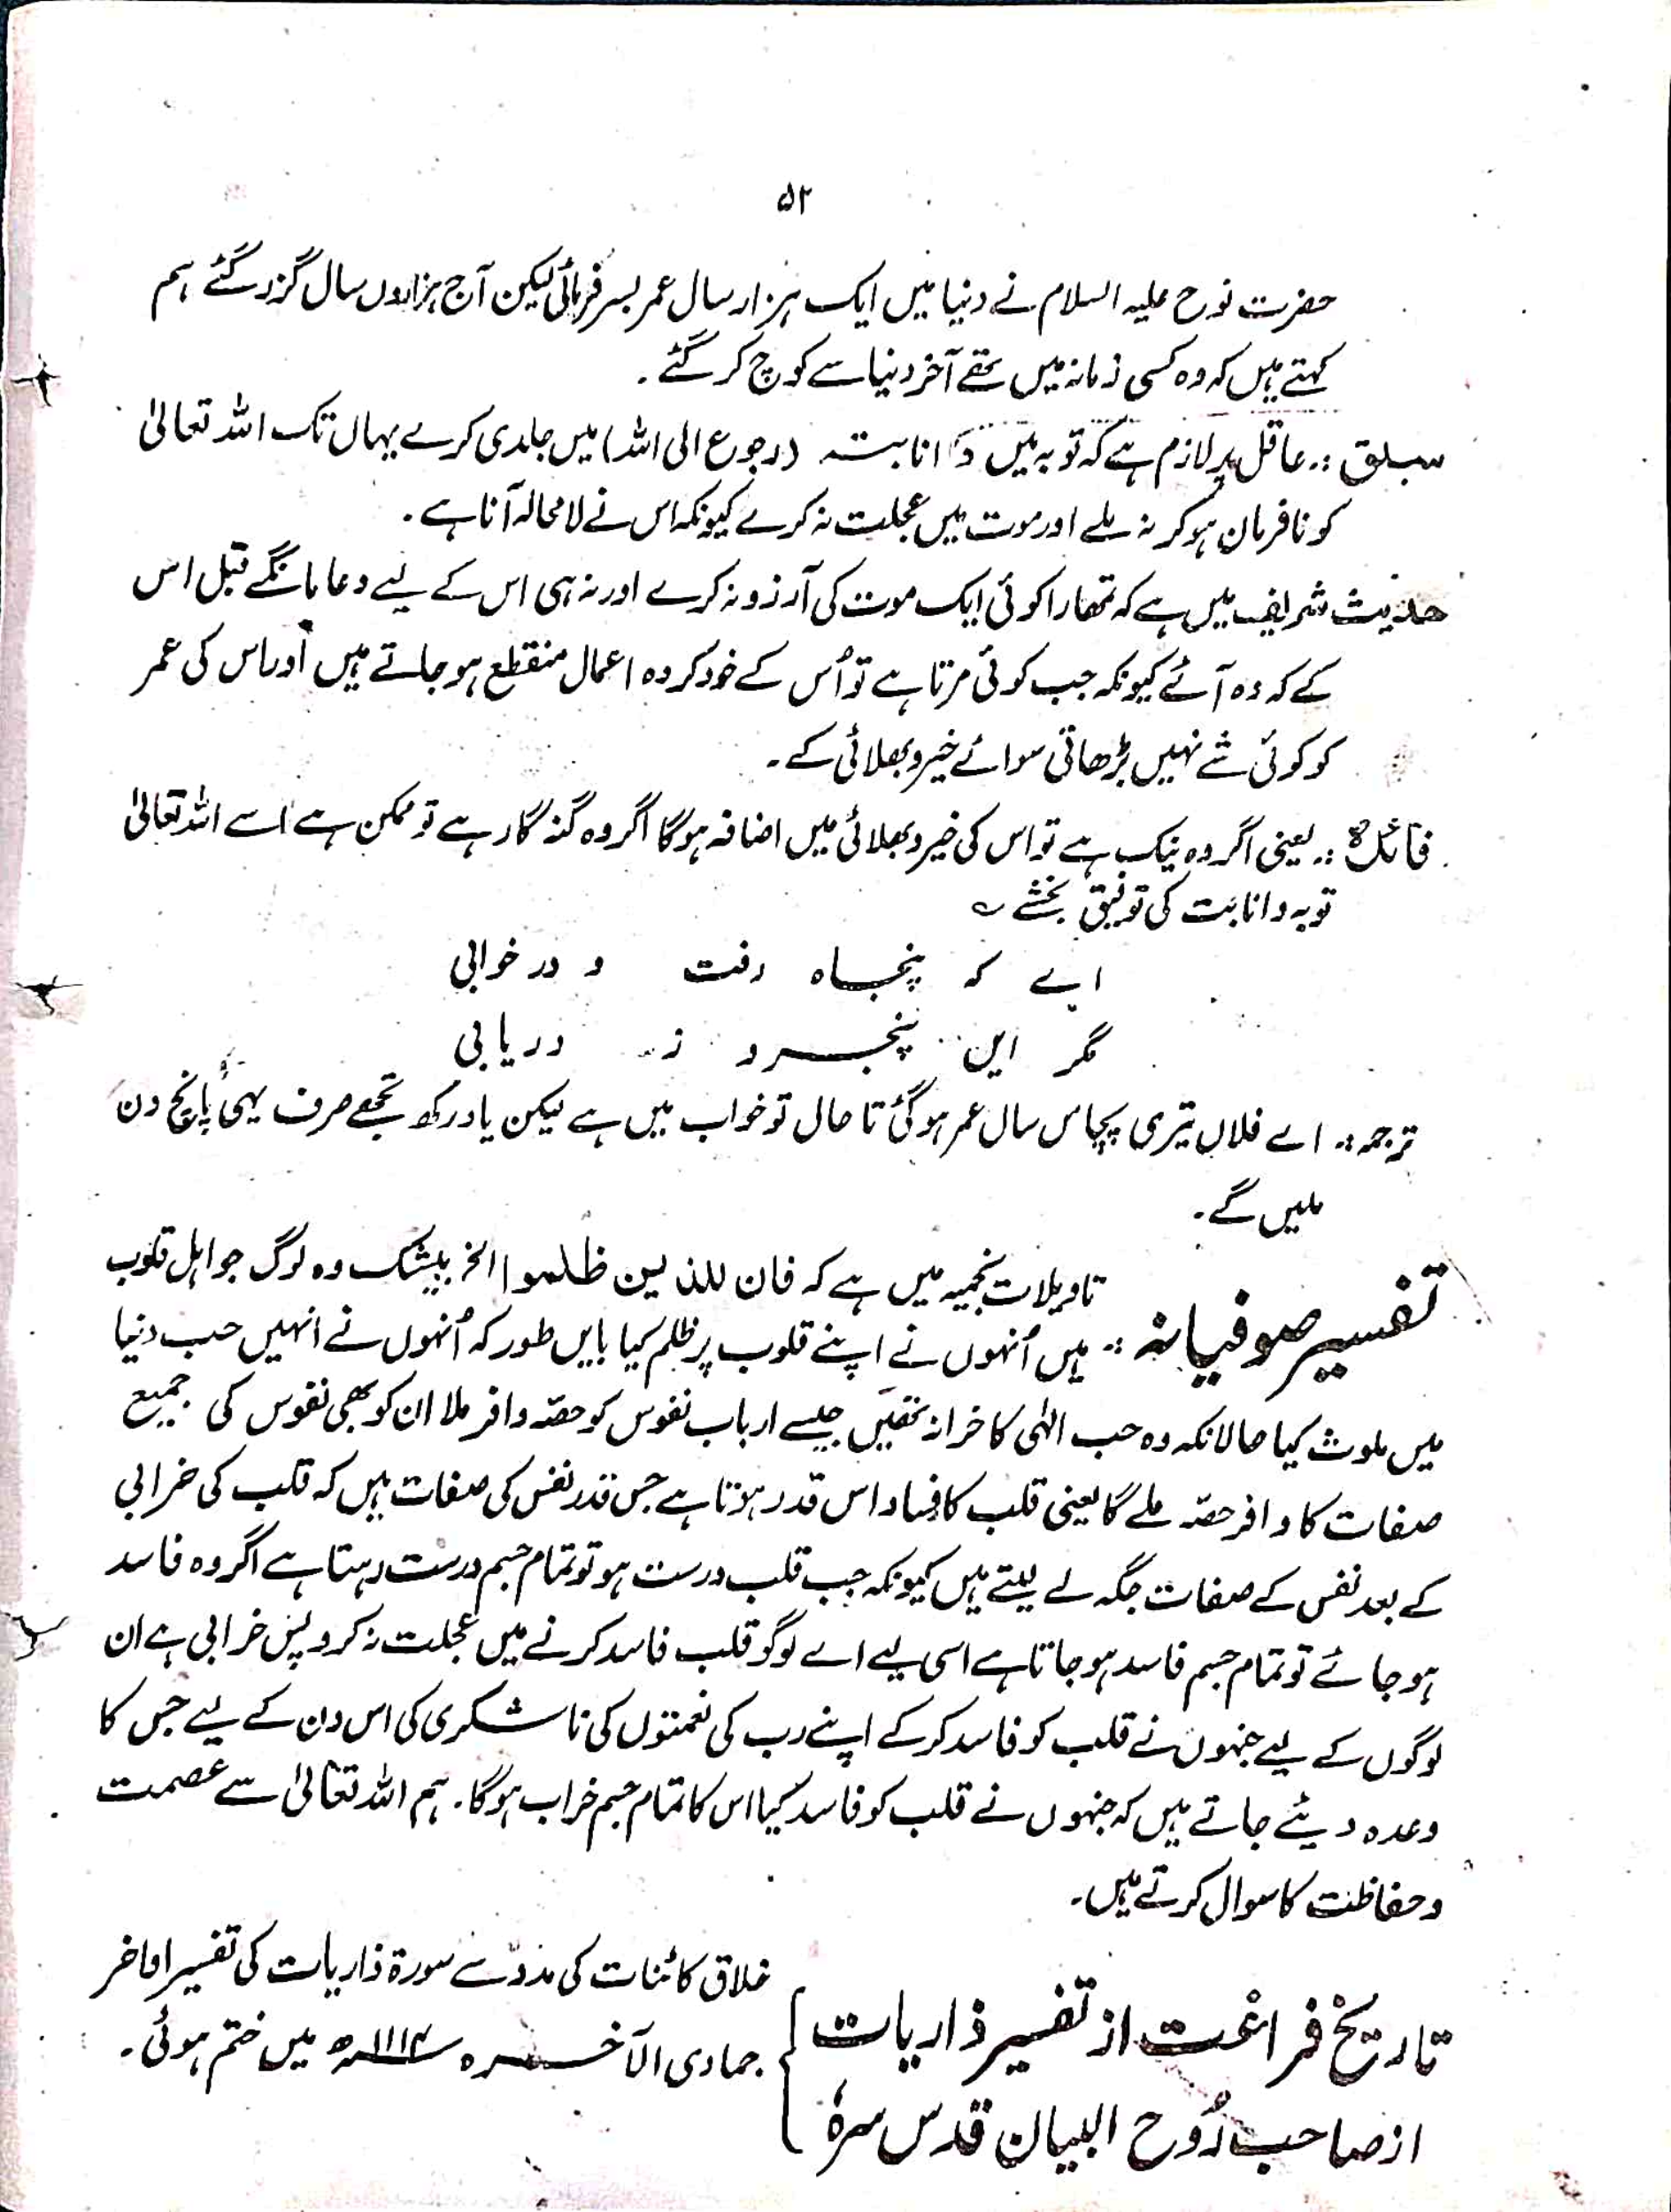 ۵۲
حضرت نوح علیہ السلام نے دنیا میں ایک ہزار سال عمر بسر فرمائی لیکن آج ہزاروں سال گزر گئے ہم
کہتے ہیں کہ وہ کسی زمانہ میں تھے آخر دنیا سے کوچ کر گئے ۔
سبق :۔ عاقل پر لازم ہے کہ توبہ میں و انابت (رجوع الی اللہ) میں جلدی کرے یہاں تک اللہ تعالیٰ
کو نافرمان ہو کر نہ ملے اور موت میں عجلت نہ کرے کیونکہ اس نے لا محالہ آنا ہے ۔
حدیث شریف میں ہے کہ تمھارا کوئی ایک موت کی آرزو نہ کرے اور نہ ہی اس کے لیے دعا مانگے قبل اس
کے کہ وہ آئے کیونکہ جب کوئی مرتا ہے تو اُس کے خود کردہ اعمال منقطع ہو جاتے ہیں اور اس کی عمر
کو کوئی شے نہیں بڑھاتی سوائے خیر و بھلائی کے ۔
فائدہ :۔ یعنی اگر وہ نیک ہے تو اس کی خیر و بھلائی میں اضافہ ہو گا اگر وہ گنہ گار ہے تو ممکن ہے اسے اللہ تعالیٰ
توبہ و انابت کی توفیق بخشے ؎
اے کہ پنجاہ رفت و در خوابی
مگر این پنجرو ز دریابی
ترجمہ :۔ اے فلاں تیری پچاس سال عمر ہو گئی تا حال تو خواب میں ہے لیکن یاد رکھ تجھے صرف یہی پانچ دن
ملیں گے ۔
تفسیر صوفیانہ :۔ تاویلات نجمیہ میں ہے کہ فان للذین ظلموا الخ بیشک وہ لوگ جو اہل قلوب
ہیں اُنہوں نے اپنے قلوب پر ظلم کیا بایں طور کہ اُنہوں نے انہیں حب دنیا
میں ملوث کیا حالانکہ وہ حب الٰہی کا خزانہ تھیں جیسے ارباب نفوس کو حصّہ وافر ملا ان کو بھی نفوس کی جمیع
صفات کا وافر حصّہ ملے گا یعنی قلب کا فساد اس قدر ہوتا ہے جس قدر نفس کی صفات ہیں کہ قلب کی خرابی
کے بعد نفس کے صفات جگہ لے لیتے ہیں کیونکہ جب قلب درست ہو تو تمام جسم درست رہتا ہے اگر وہ فاسد
ہو جائے تو تمام جسم فاسد ہو جاتا ہے اسی لیے اے لوگو قلب فاسد کرنے میں عجلت نہ کرو پس خرابی ہے ان
لوگوں کے لیے جنہوں نے قلب کو فاسد کر کے اپنے رب کی نعمتوں کی ناشکری کی اس دن کے لیے جس کا
وعدہ دیئے جاتے ہیں کہ جنہوں نے قلب کو فاسد کیا اس کا تمام جسم خراب ہو گا ۔ ہم اللہ تعالیٰ سے عصمت
و حفاظت کا سوال کرتے ہیں ۔
تاریخ فراغت از تفسیر ذاریات
از صاحب رُوح البیان قدس سرہٗ
خلاق کائنات کی مدد سے سورۃ ذاریات کی تفسیر اواخر
جمادی الآخرہ ۱۱۱۴ھ میں ختم ہوئی ۔